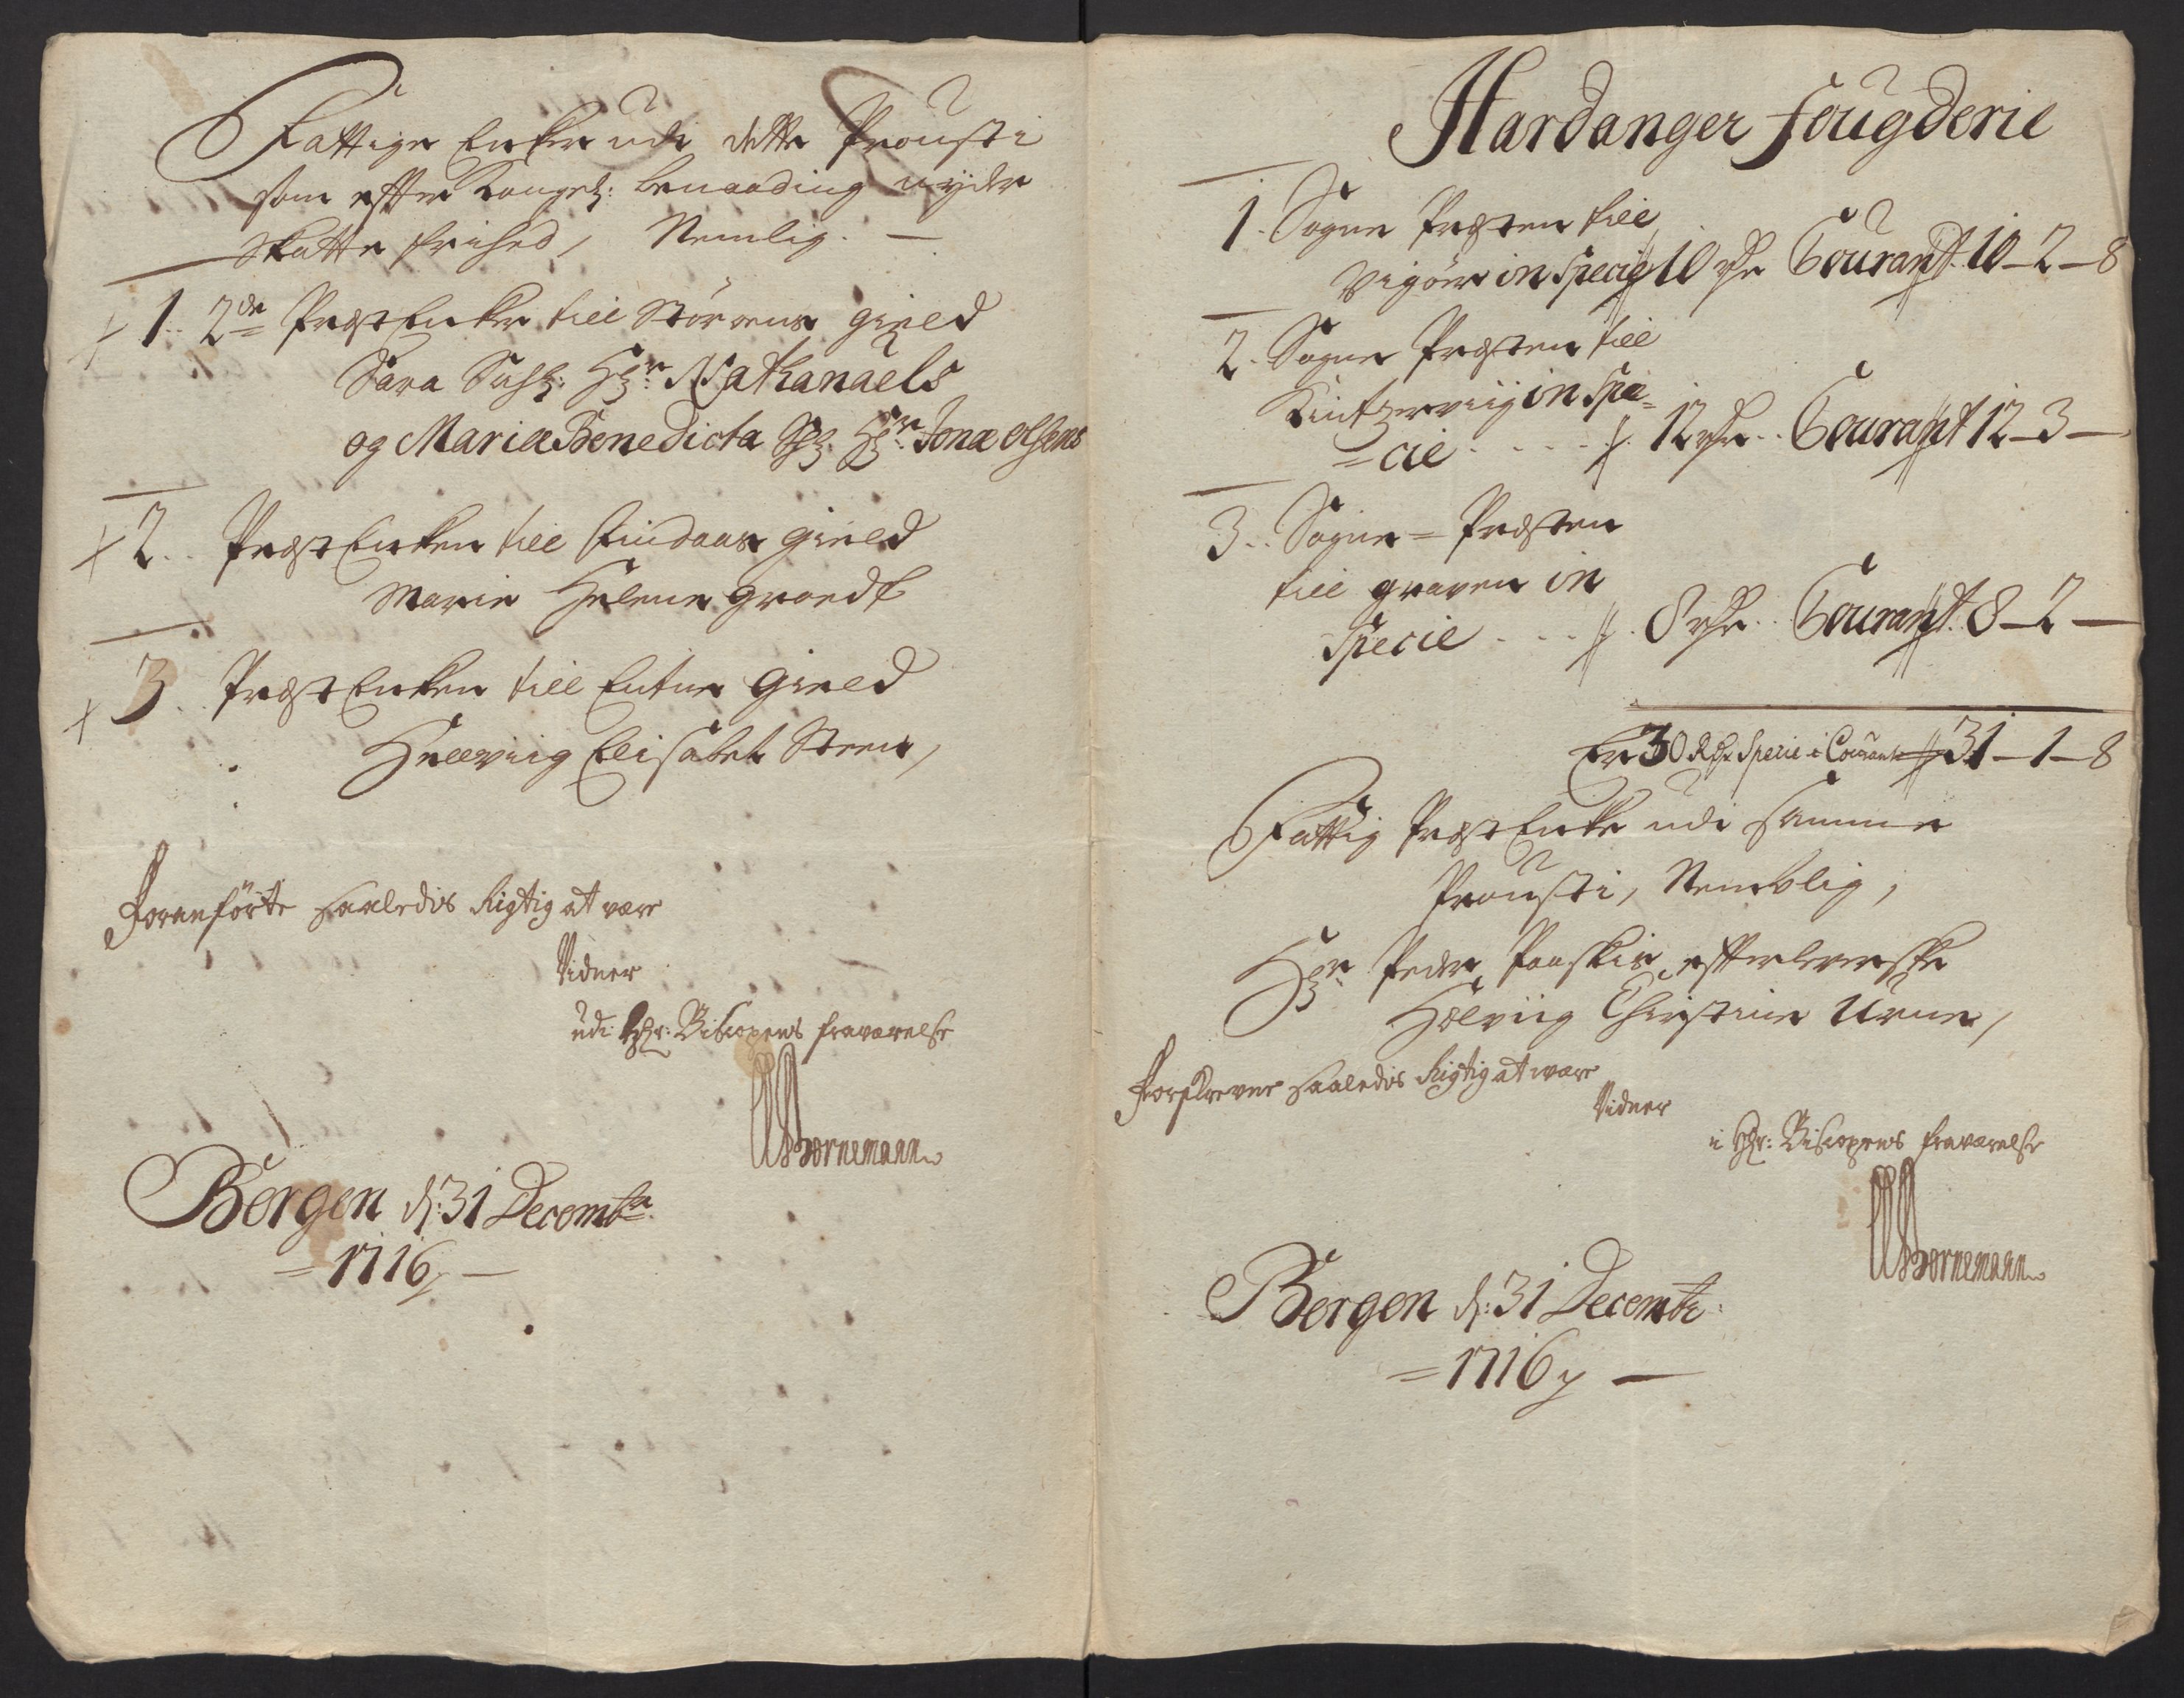 Fattige Enker udi dette Prousti
som efter Kongel: benaading nyder
Skatte frihed, Nemlig. —
+ 1. 2de Præst Enker till Störens gield
Sara Sahl: Hr: Nathanaels
og Maria Benedicta Sl: Hr: Jonæ olsens
+ 2. Præst Enken till Lindaas gield
Marie Helene groedt
+ 3. Præst Enken till Eutne gield
Hellvig Elisabet Steen,
Foranförte saaledis Rigtig at være
Vidner
udi Hr: Biscopens fraværelse
Bornemann
Bergen d: 31 Decembr
= 1716 —
Hardanger fougderie
1. Sogne Præsten till
Vigöer in Specie 10 rdr Courant 10-2-8
2. Sogne Præsten till
Kintzerviig in Spe=
=cie . . . . 12 rdr . . Courant 12-3-
3. . Sogne = Præsten
till graven in
Specie . . . 8 rdr . . Courant 8-2-
Er 30 Rdr Specie i Courant 31-1-8
Fattig Præst Enke udi samme
Prousti, Nemblig,
Hr Peder Paaskis efterleverske
Hælviig Christine Urne,
Forskrevne saaledis Rigtig at være
Vidner
i Hr: Biscopens fraværelse
Bornemann
Bergen d: 31 Decembr:
= 1716 —